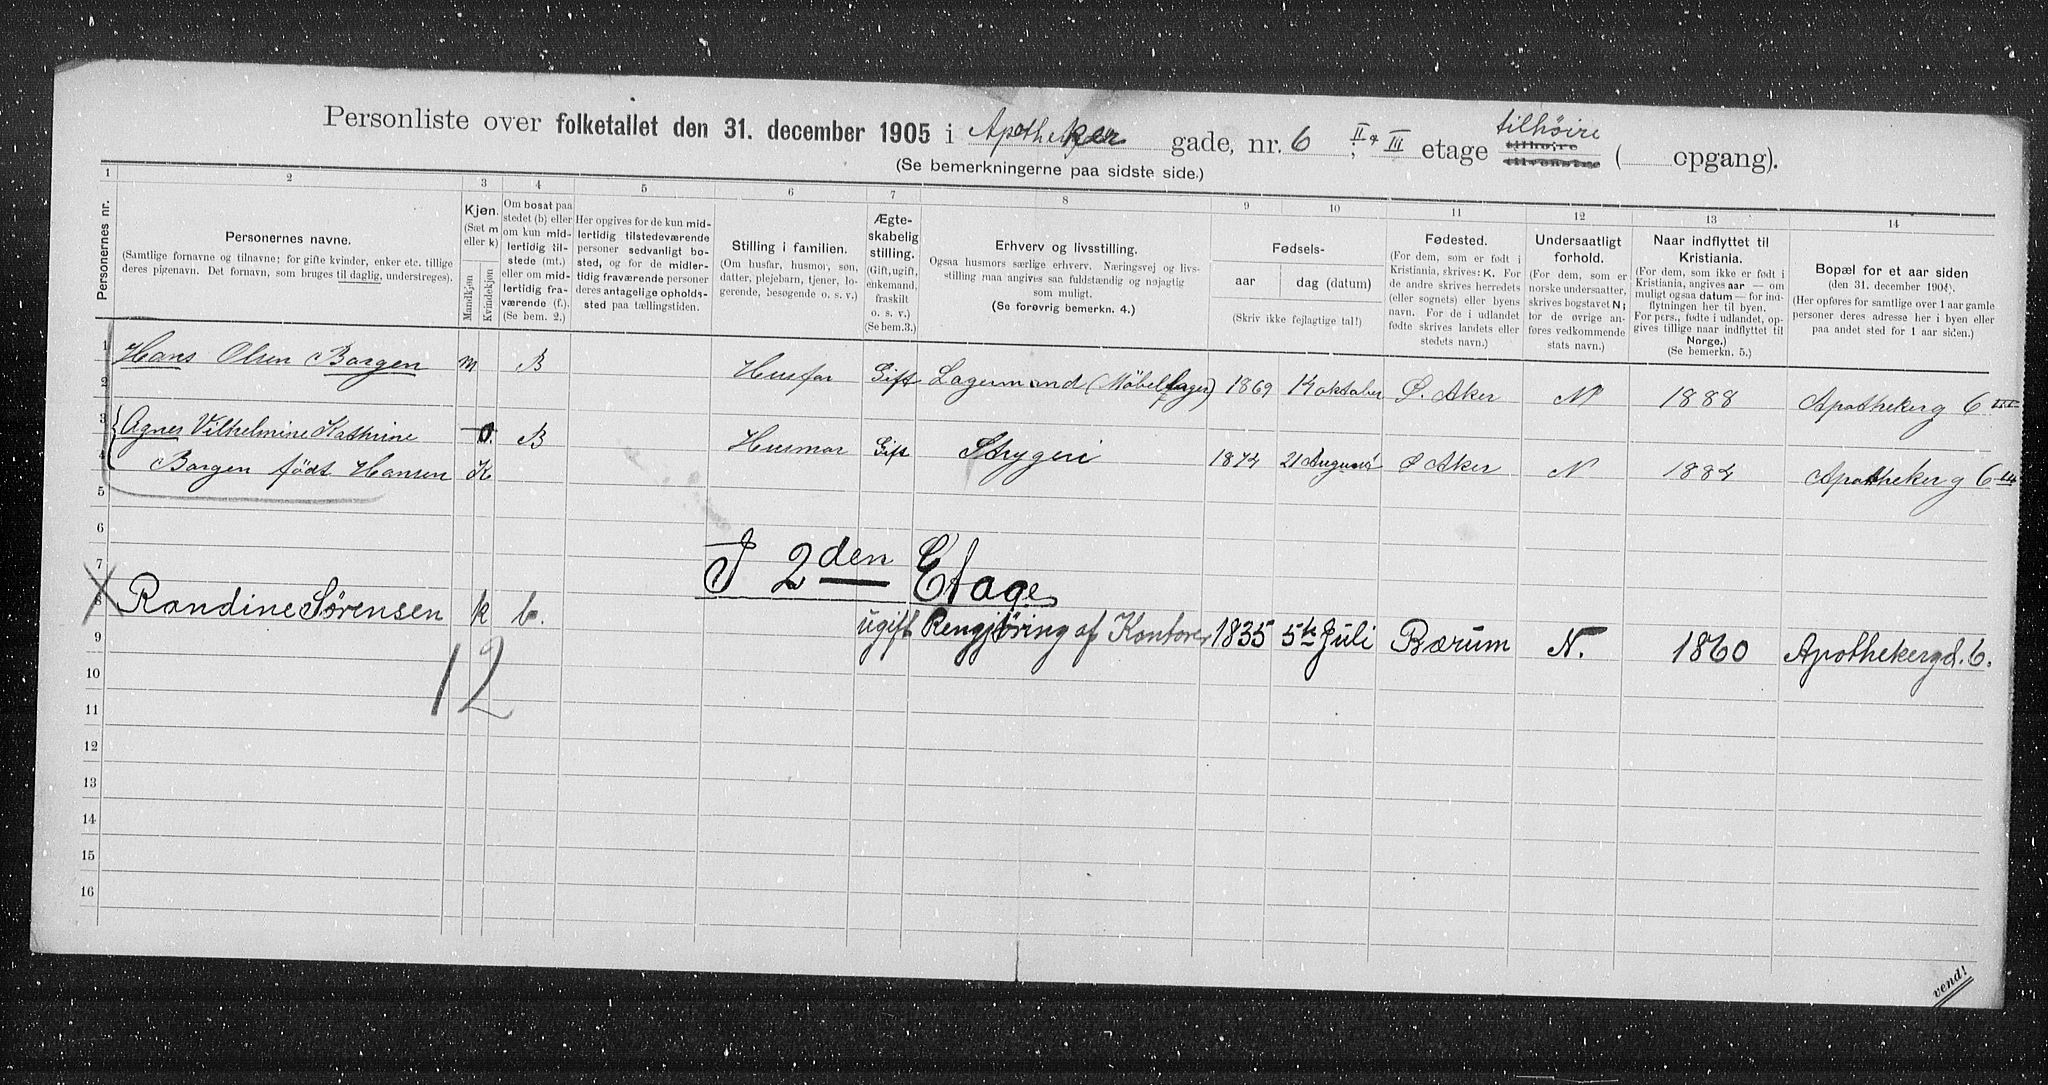 Personliste over folketallet den 31. december 1905 i Apotheker gade, nr. 6 II & III etage tilhøire ( opgang).
tilhøire
tilvenstre
(Se bemerkningerne paa sidste side.)
1 2 3 4 5 6 7 8 9 10 11 12 13 14
Personernes nr.
Personernes navne.
(Samtlige fornavne og tilnavne; for gifte kvinder, enker etc. tillige
deres pigenavn. Det fornavn, som bruges til daglig, understreges).
Kjøn.
(Sæt m
eller k)
Mandkjøn
Kvindekjøn
Om bosat paa
stedet (b) eller
om kun mid-
lertidig til-
stede (mt.)
eller om mid-
lertidig fra-
værende (f.).
(Se bem. 2.)
Her opgives for de kun mid-
lertidig tilstedeværende
personer sedvanlig bo-
sted, og for de midler-
tidig fraværende personer
deres antagelige opholds-
sted paa tællingstiden.
Stilling i familien.
(Om husfar, husmor, søn,
datter, plejebarn, tjener, lo-
gerende, besøgende o. s. v.)
Ægte-
skabelig
stilling.
(Gift, ugift,
enkemand,
fraskilt
o. s. v.)
(Se bem.3.)
Erhverv og livsstilling.
Ogsaa husmors særlige erhverv. Næringsvej og livs-
stilling maa angives saa fuldstændig og nøjagtig
som muligt.
(Se forøvrig bemerkn. 4.)
Fødsels-
aar dag (datum)
(Skriv ikke fejlagtige tal!)
Fødested.
(For dem, som er født i
Kristiania, skrives: K. For
de andre skrives herredets
(eller sognets) eller byens
navn. For de i udlandet
fødte skrives landets eller
stedets navn.)
Undersaatligt
forhold.
(For dem, som er
norske undersaatter,
skrives bogstavet N;
for de øvrige an-
føres vedkommende
stats navn.)
Naar indflyttet til
Kristiania.
(For dem, som ikke er født i
Kristiania, angives aar — om
muligt ogsaa datum — for ind-
flytningen her til byen.
For pers., fødte i udlandet, op-
gives tillige naar indflyttet til
Norge.)
(Se bemerkn. 5.)
Bopæl for et aar siden
(den 31. december 1904).
(Her opføres for samtlige over 1 aar gamle
personer deres adresse her i byen eller
paa andet sted for 1 aar siden.)
1
2
Hans Olsen Borgen m B Husfar Gift Lagermand (Møbellager) 1869 14 oktober Ø. Aker N 1888 Apotheker g 6 III
3
Agnes Vilhelmine Kathrine B Husmor Gift Strygeri 1874 21 August Ø Aker N 1884 Apotheker g 6 III
4
Borgen født Hansen K
5
6
7
I 2den Etage
8
Randine Sørensen k b. ugift Rengjøring af Kontorer 1835 5te Juli Bærum N. 1860 Apothekergd. 6.
9
12
10
11
12
13
14
15
16
vend!